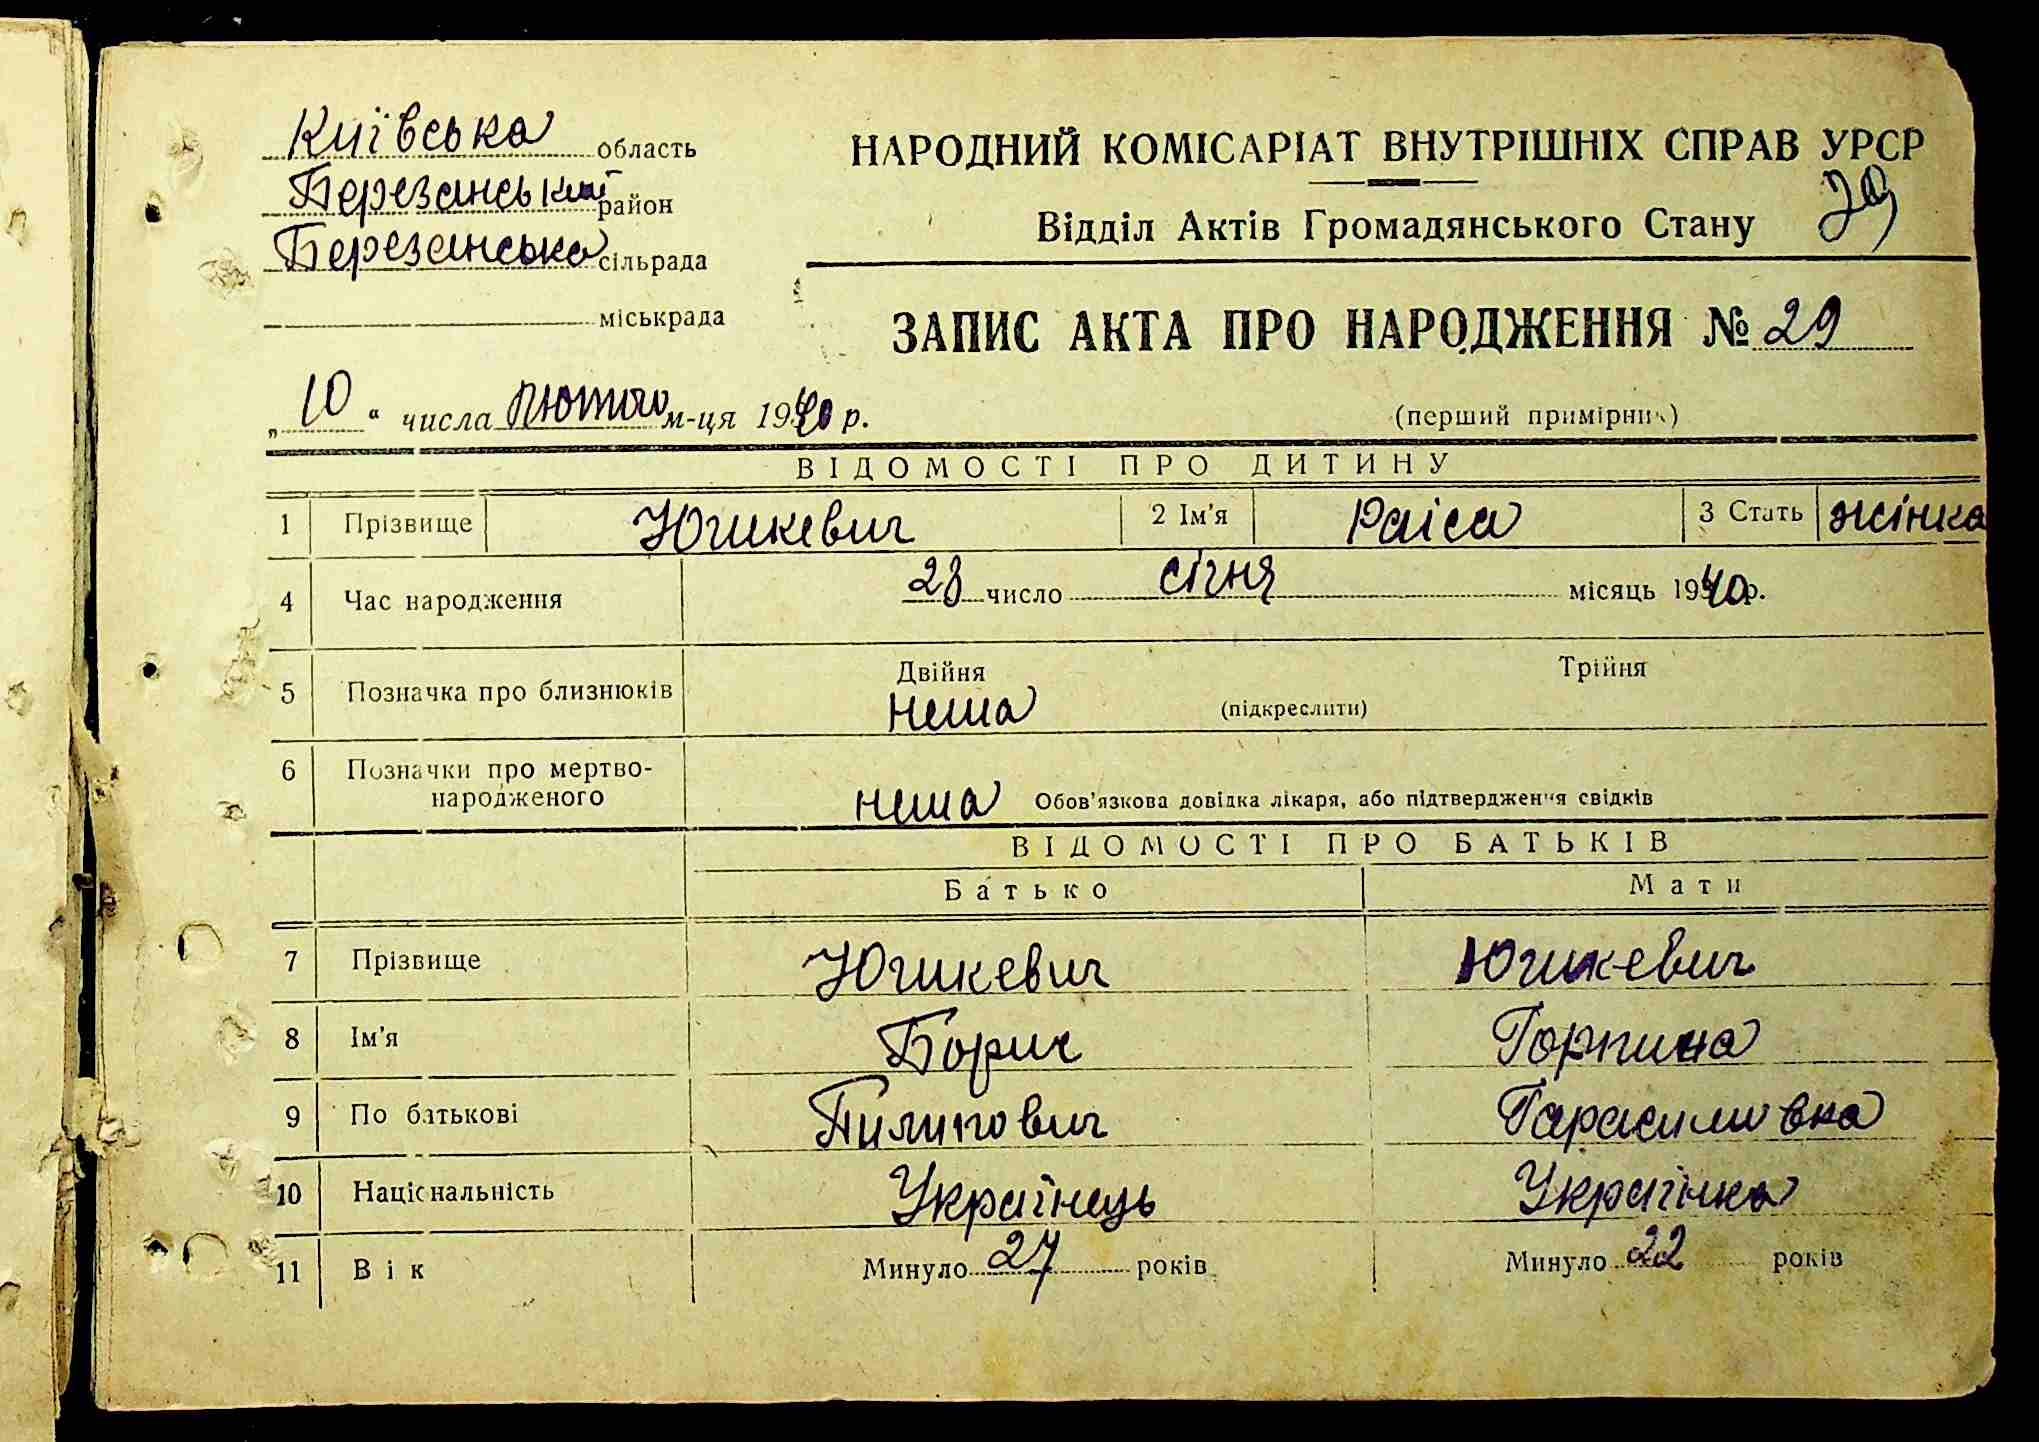 Київська область
Березанський район
Березанська сільрада
міськрада
НАРОДНИЙ КОМІСАРІАТ ВНУТРІШНІХ СПРАВ УРСР
Відділ Актів Громадянського Стану
29
ЗАПИС АКТА ПРО НАРОДЖЕННЯ № 29
„10“ числа лютого м-ця 1940 р.
(перший примірник)
ВІДОМОСТІ ПРО ДИТИНУ
1 Прізвище Юшкевич 2 Ім'я Раіса 3 Стать жінка
4 Час народження 28 число січня місяць 1940 р.
5 Позначка про близнюків Двійня Трійня
нема (підкреслити)
6 Позначки про мертво-
народженого нема Обов'язкова довідка лікаря, або підтвердження свідків
ВІДОМОСТІ ПРО БАТЬКІВ
Батько Мати
7 Прізвище Юшкевич Юшкевич
8 Ім'я Борис Горпина
9 По батькові Пилипович Гарасимовна
10 Національність Українець Українка
11 Вік Минуло 27 років Минуло 22 років